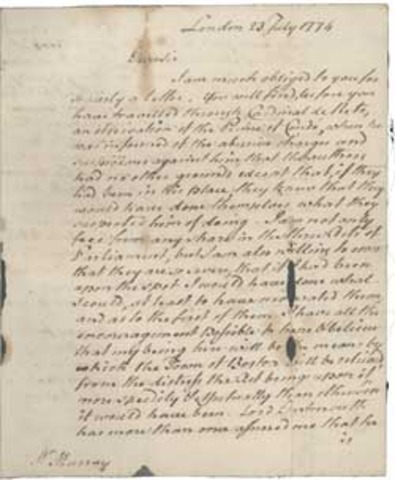 London 23 July 1774
Dear Sir
I am much obliged to you for
so early a letter. You will find, before you
have travelled through Cardinal de Retz,
an observation of the Prince of Condé, when he
was informed of the abusive charges and
suspicions against him that the authors
had no other grounds except that, if they
had been in his Place, they knew that they
would have done themselves what they
suspected him of doing. I am not only
free from any share in the three Acts of
Parliament, but I am also willing to own
that they are so severe, that if I had been
upon the spot I would have done what
I could, at least to have moderated them
and as to the first of them I have all the
encouragement Possible to hope & believe
that my being here will be the means by
which the Town of Boston will be relieved
from the distress the Act brings upon it
more speedily & effectually than otherwise
it would have been. Lord Dartmouth
has more than once assured me that he
is
Mr. Murray